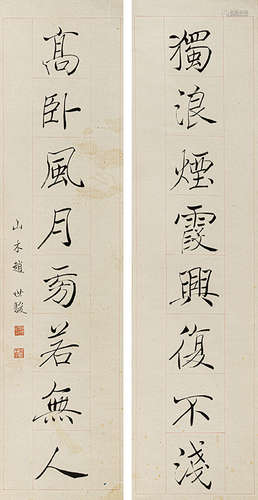 獨浪煙霞興復不淺
髙臥風月旁若無人
山木趙世駿